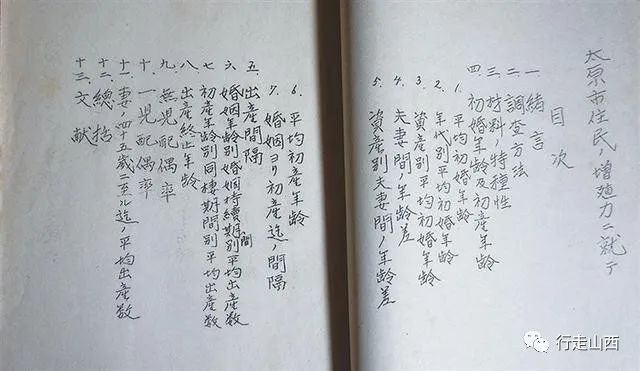 太原市住民ノ増殖力ニ就テ
目次
一 緒言
二 調查方法
三 材料ノ特種性
四 初婚年齡及初産年齡
1. 平均初婚年齡
2. 年代別平均初婚年齡
3. 資産別平均初婚年齡
4. 夫妻間ノ年齡差
5. 資産別夫妻間ノ年齡差
6. 平均初産年齡
7. 婚姻ヨリ初産迄ノ間隔
五. 出産間隔
六. 婚姻年齡別婚姻持續期間別平均出産数
七 初産年齡別同棲期間別平均出産数
八 出産終止年齡
九. 無児配偶率
十. 一児配偶率
十一 妻ノ四十五歲ニ至ル迄ノ平均出産数
十二 總括
十三. 文献
行走山西